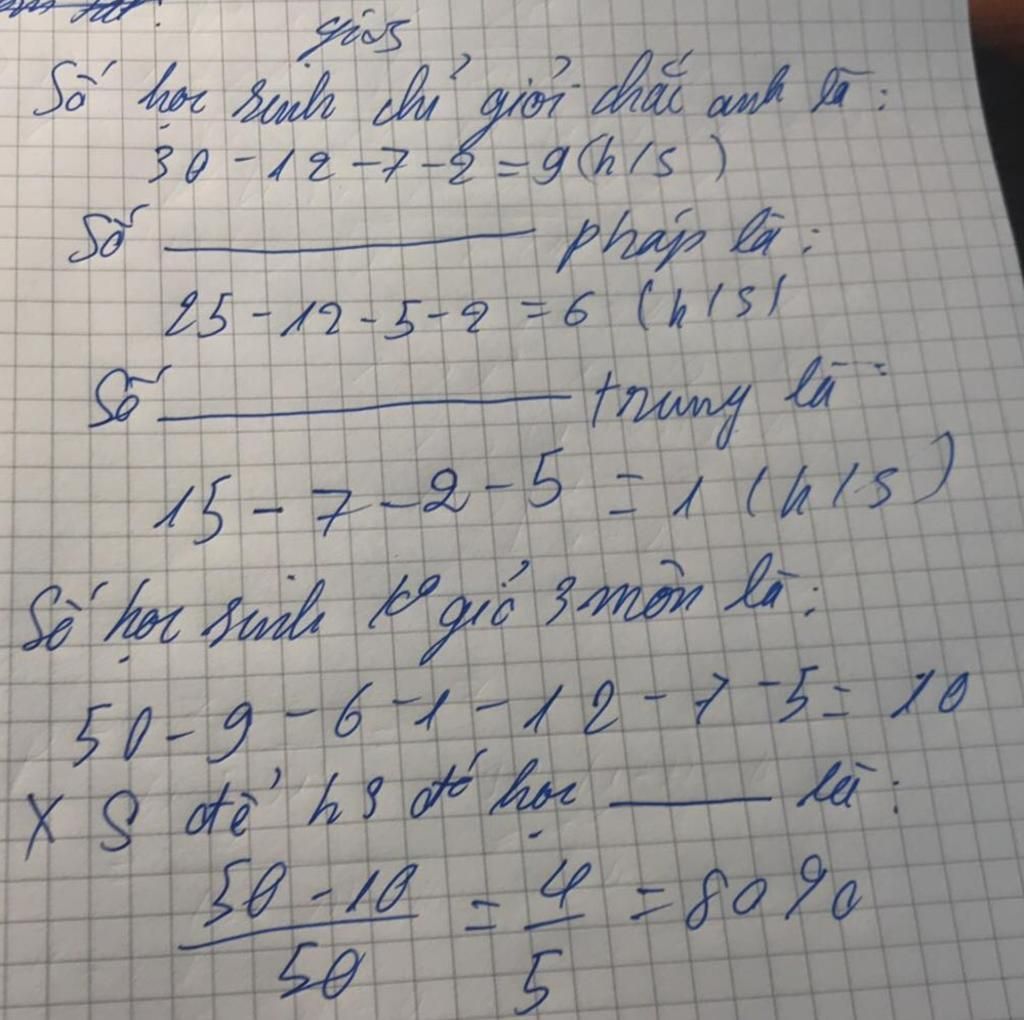 giải
Số học sinh chỉ giỏi chắc anh là:
30 - 12 - 7 - 2 = 9 (h/s)
Số ——— pháp là:
25 - 12 - 5 - 2 = 6 (h/s)
Số ——— trung là
15 - 7 - 2 - 5 = 1 (h/s)
Số học sinh ko giỏ 3 môn là:
50 - 9 - 6 - 1 - 12 - 7 - 5 = 10
X S để hs đó học ——— là:
50 - 10 / 50 = 4 / 5 = 80%